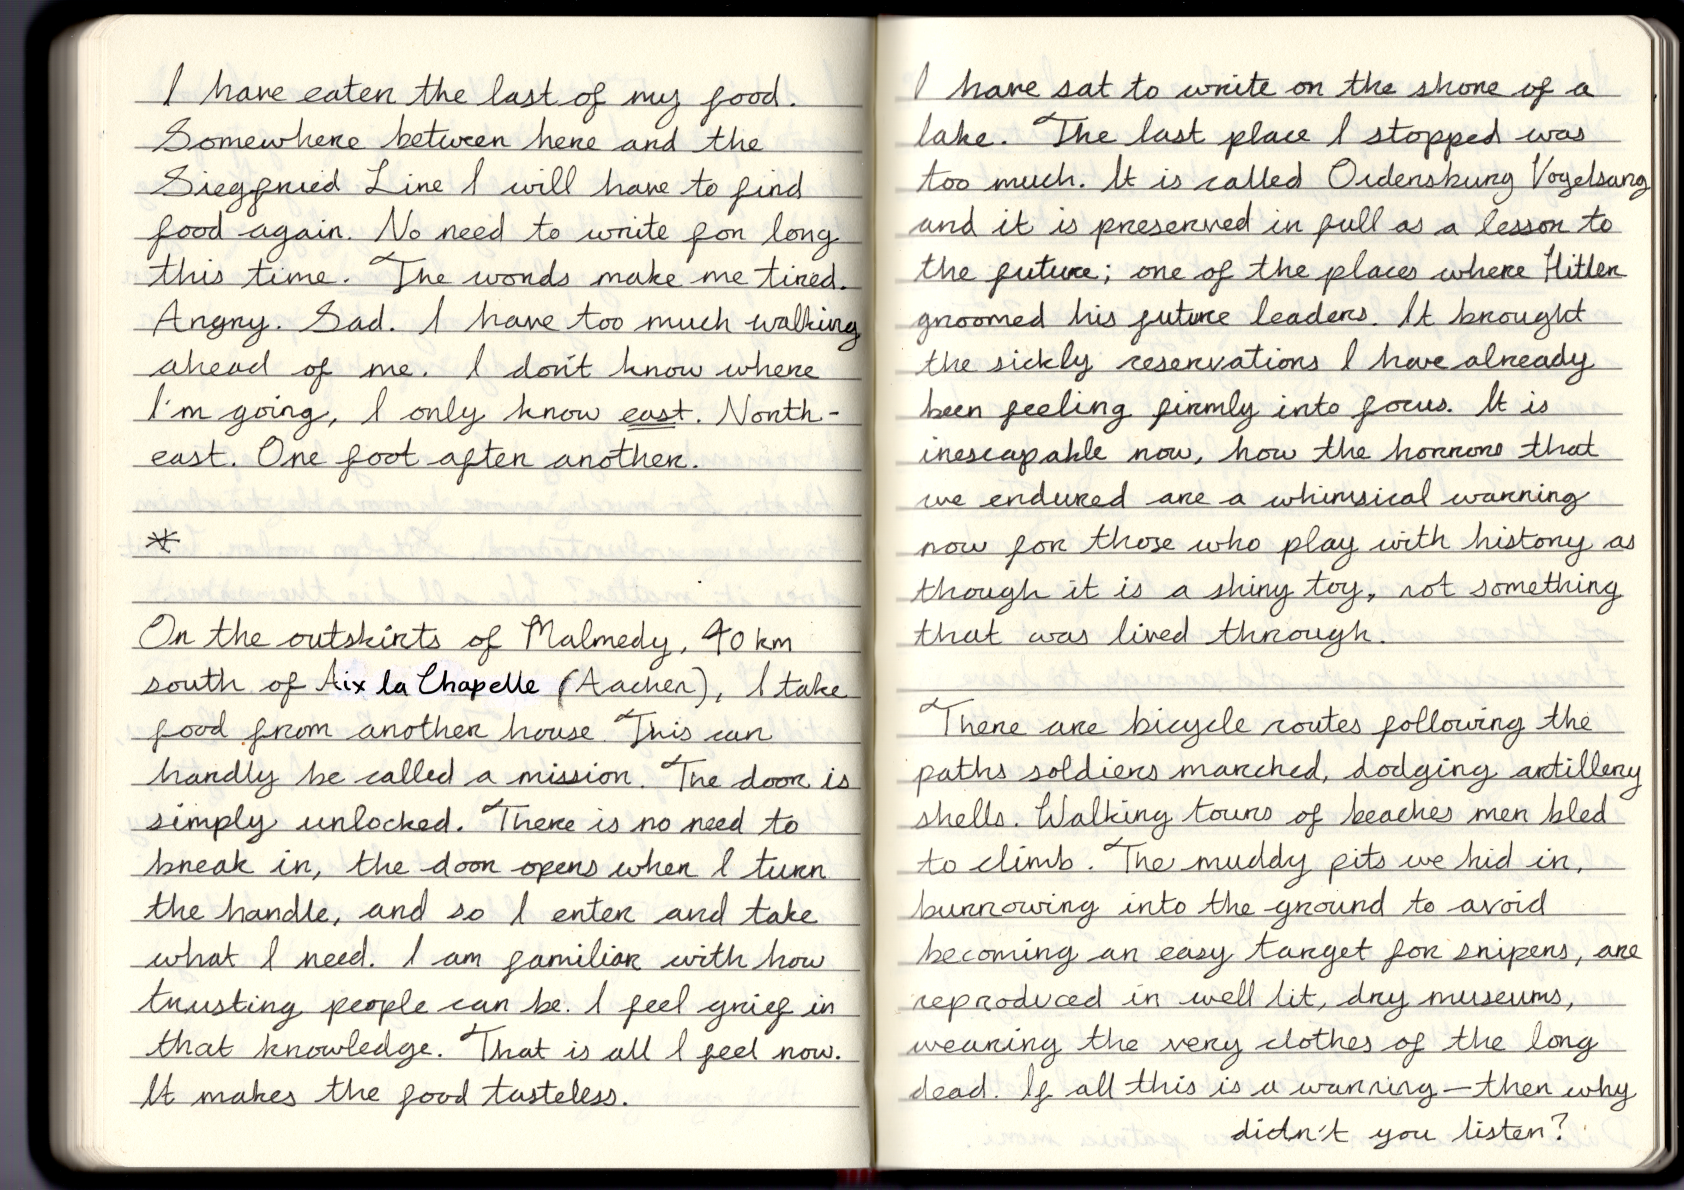 I have eaten the last of my food.
Somewhere between here and the
Siegfried Line I will have to find
food again. No need to write for long
this time. The words make me tired.
Angry. Sad. I have too much walking
ahead of me. I don't know where
I'm going, I only know east. North-
east. One foot after another.
*
On the outskirts of Malmedy, 40 km
south of Aix la Chapelle (Aachen), I take
food from another house. This can
hardly be called a mission. The door is
simply unlocked. There is no need to
break in, the door opens when I turn
the handle, and so I enter and take
what I need. I am familiar with how
trusting people can be. I feel grief in
that knowledge. That is all I feel now.
It makes the food tasteless.
I have sat to write on the shore of a
lake. The last place I stopped was
too much. It is called Ordensburg Vogelsang
and it is preserved in full as a lesson to
the future; one of the places where Hitler
groomed his future leaders. It brought
the sickly reservations I have already
been feeling firmly into focus. It is
inescapable now, how the horrors that
we endured are a whimsical warning
now for those who play with history as
though it is a shiny toy, not something
that was lived through.
There are bicycle routes following the
paths soldiers marched, dodging artillery
shells. Walking tours of beaches men bled
to climb. The muddy pits we hid in,
burrowing into the ground to avoid
becoming an easy target for snipers, are
reproduced in well lit, dry museums,
wearing the very clothes of the long
dead. If all this is a warning—then why
didn't you listen?